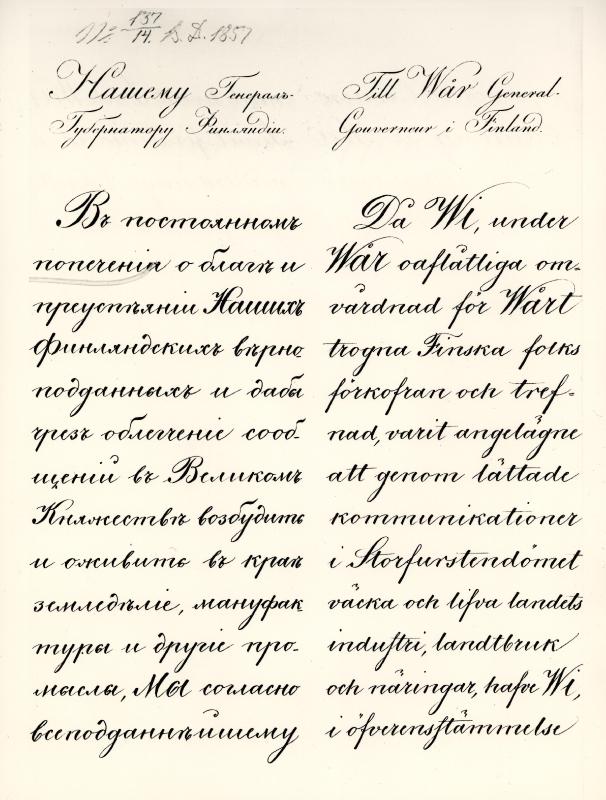 № 137/14. B. D. 1857
Нашему Генералъ-
Губернатору Финляндіи.
Въ постоянномъ
попеченіи о благѣ и
преуспѣяніи Нашихъ
Финляндскихъ вѣрно
подданныхъ и дабы
чрезъ облегченіе сооб-
щеній въ Великомъ
Княжествѣ возбудить
и оживить въ краѣ
земледѣліе, мануфак
туры и другіе про-
мыслы, Мы согласно
всеподданнѣйшему
Till Wår General-
Gouverneur i Finland.
Då Wi, under
Wår oaflåtliga om-
vårdnad för Wårt
trogna Finska folks
förkofran och tref-
nad, varit angelägne
att genom lättade
kommunikationer
i Storfurstendömet
väcka och lifva landets
industri, landtbruk
och näringar, hafve Wi,
i öfverensstämmelse